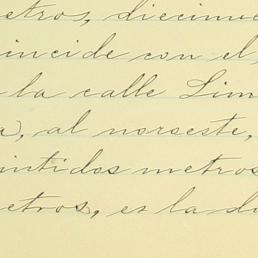 etros, diecinue
incide con el
la calle Lim
a, al noroeste,
intidos metros
etros, es la di